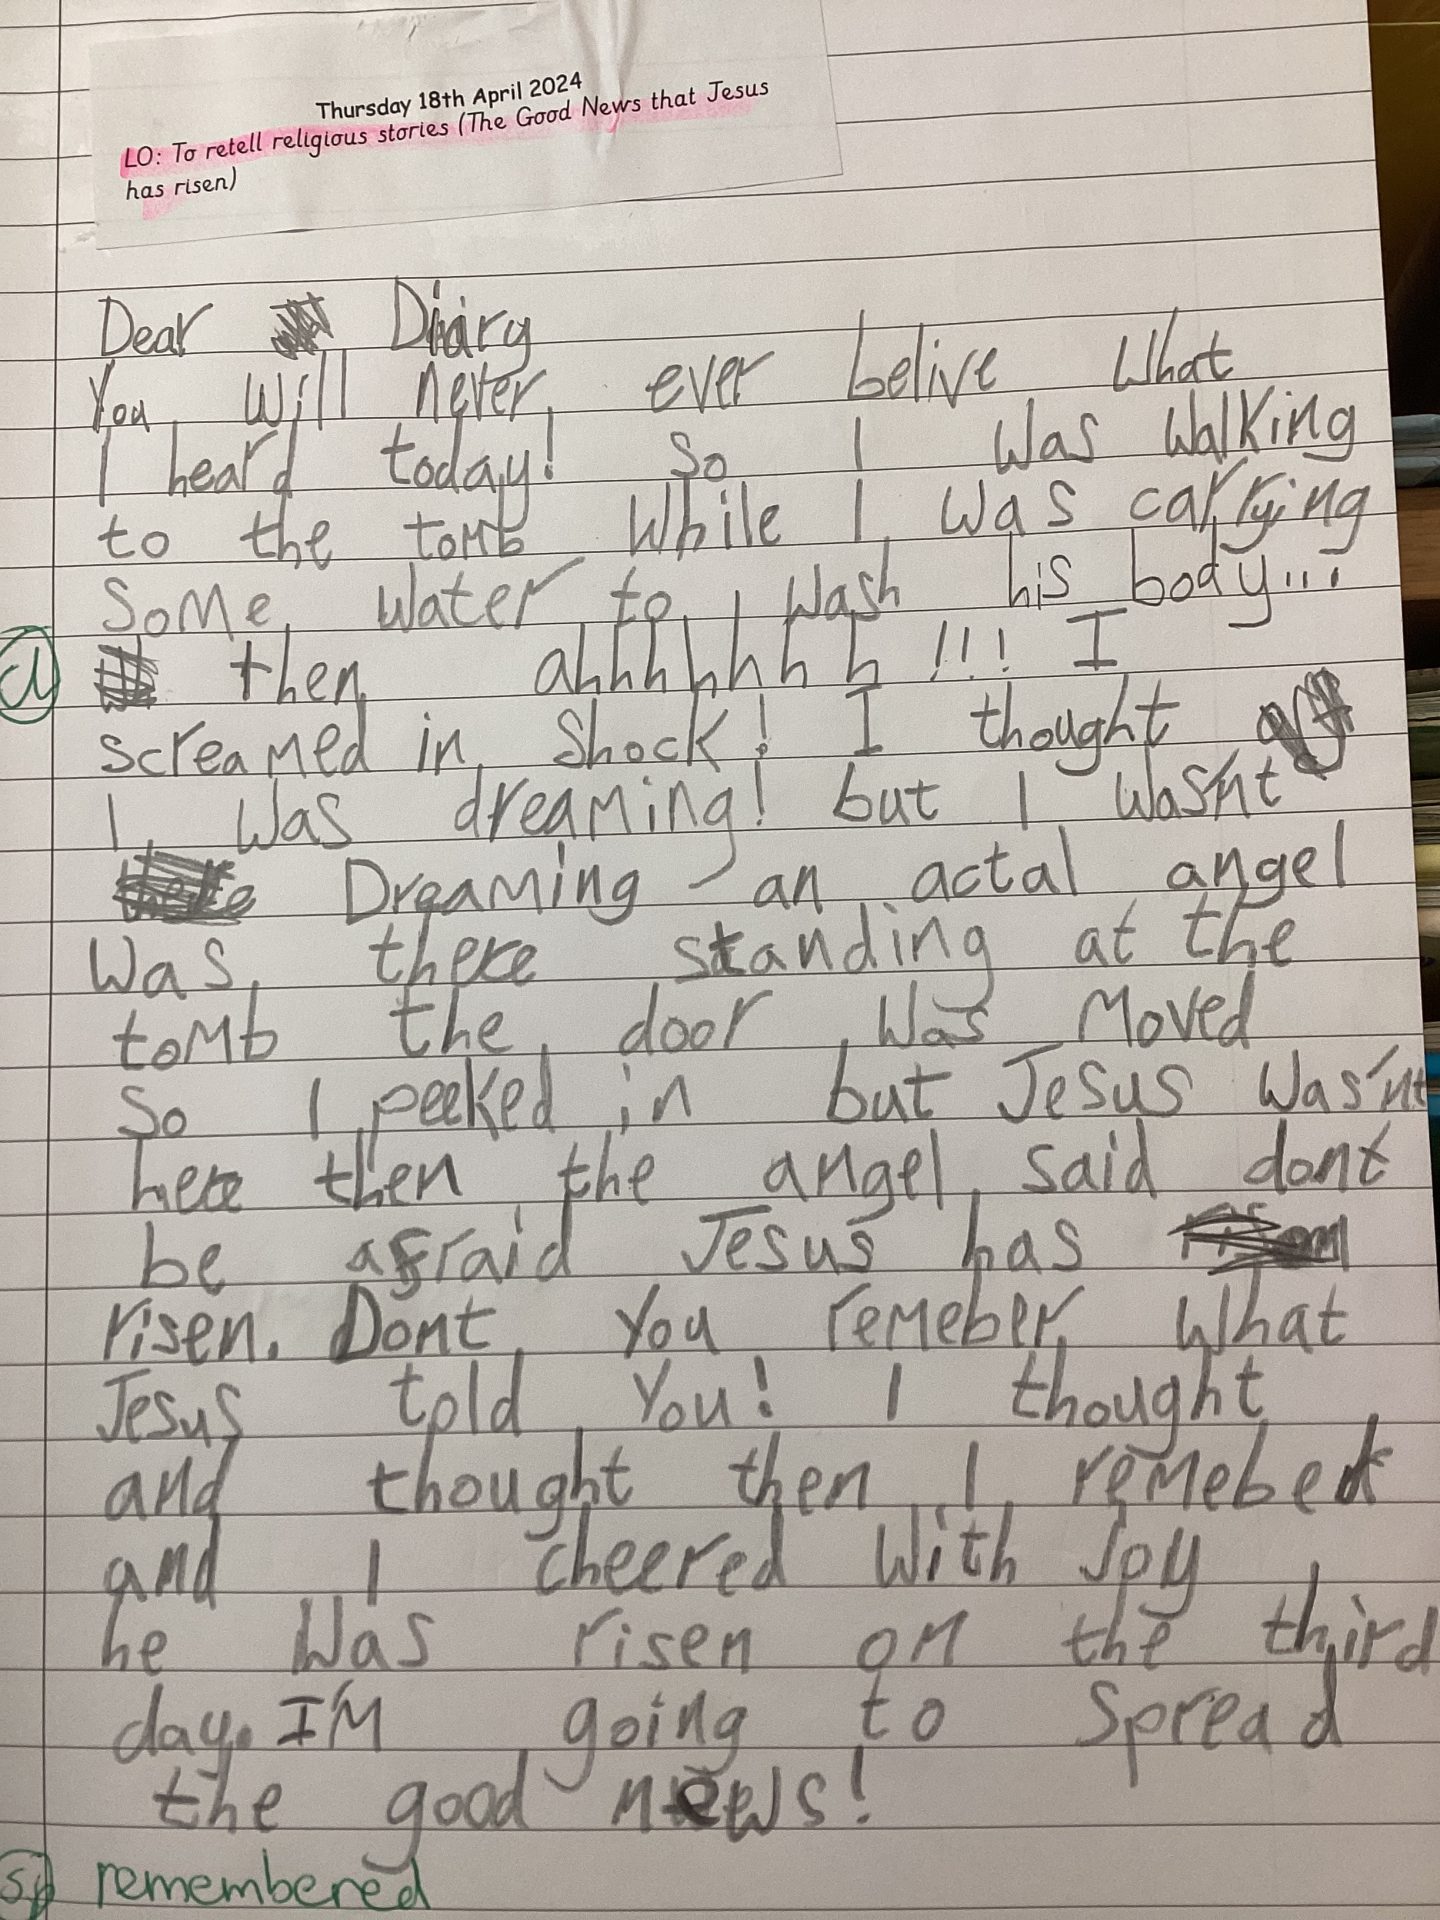 Thursday 18th April 2024
LO: To retell religious stories (The Good News that Jesus
has risen)
Dear Diary
You will never ever belive what
I heard today! So I was walking
to the tomb while I was carrying
some water to wash his body...
then ahhhhhhh!!! I
screamed in shock! I thought
I was dreaming! but I was'nt
Dreaming an actal angel
was there standing at the
tomb the door was moved
So I peeked in but Jesus was'nt
here then the angel said dont
be afraid Jesus has
risen. Dont you remeber what
Jesus told you! I thought
and thought then I remebed
and I cheered with joy
he was risen on the third
day. I'M going to spread
the good news!
sp remembered